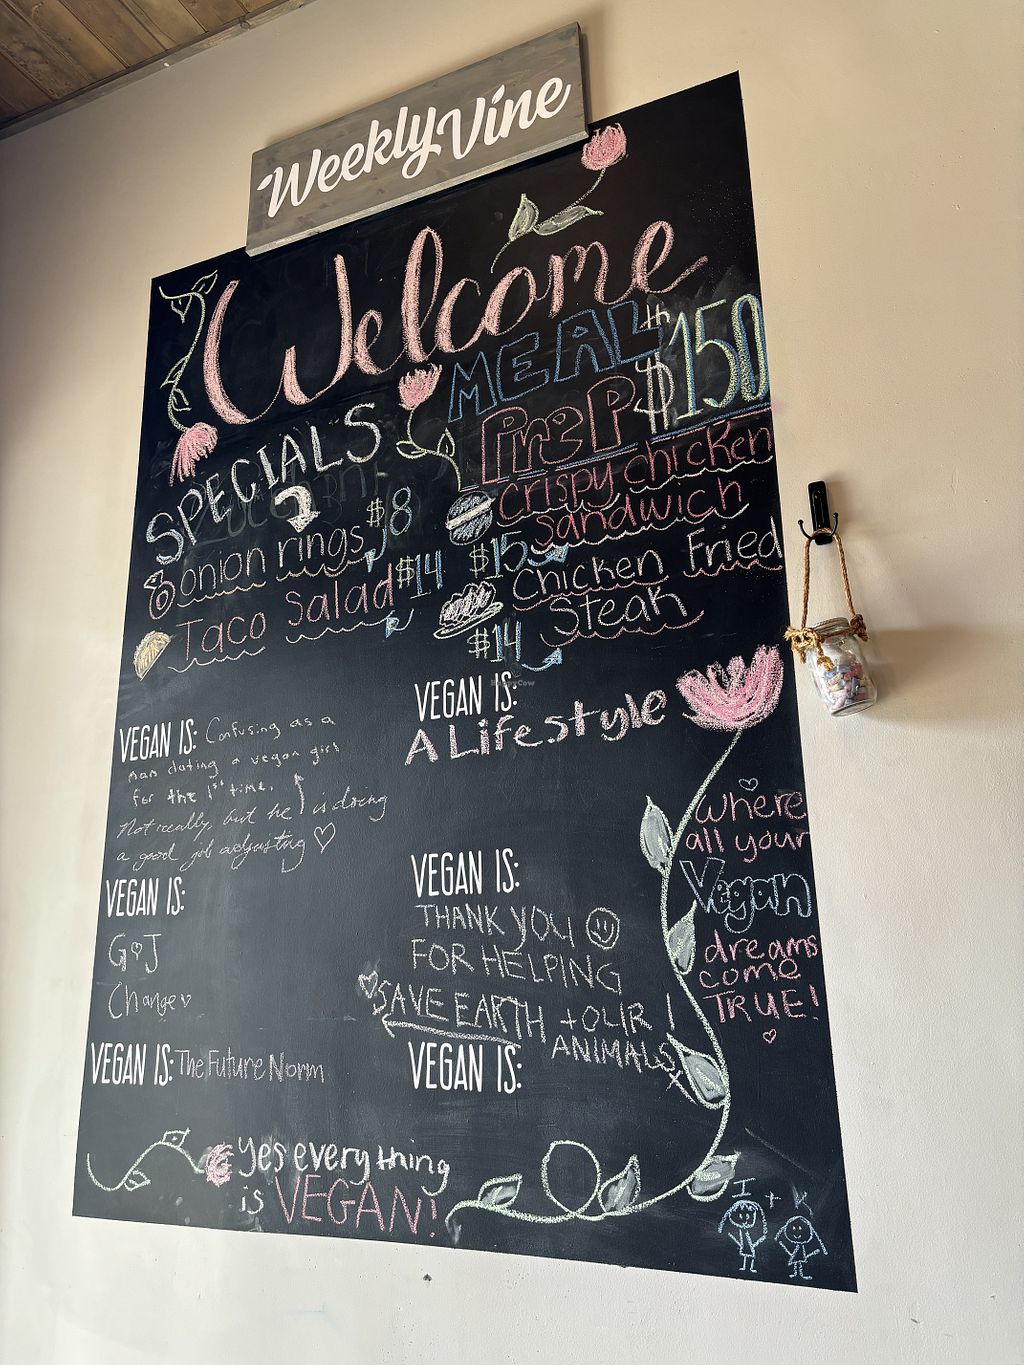 Weekly Vine
Welcome
SPECIALS
onion rings $8
Taco Salad $14
MEAL
PreP $150
crispy chicken
sandwich
$15
Chicken Fried
Steak
$14
VEGAN IS: Confusing as a
man dating a vegan girl
for the 1st time.
Not really, but he is doing
a good job adjusting ♡
VEGAN IS:
G♡J
Change♡
VEGAN IS: The Future Norm
VEGAN IS:
A Lifestyle
VEGAN IS:
THANK YOU
FOR HELPING
SAVE EARTH + OUR
ANIMALS
VEGAN IS:
where
all your
Vegan
dreams
come
TRUE!
yes everything
is VEGAN!
I + K
HappyCow